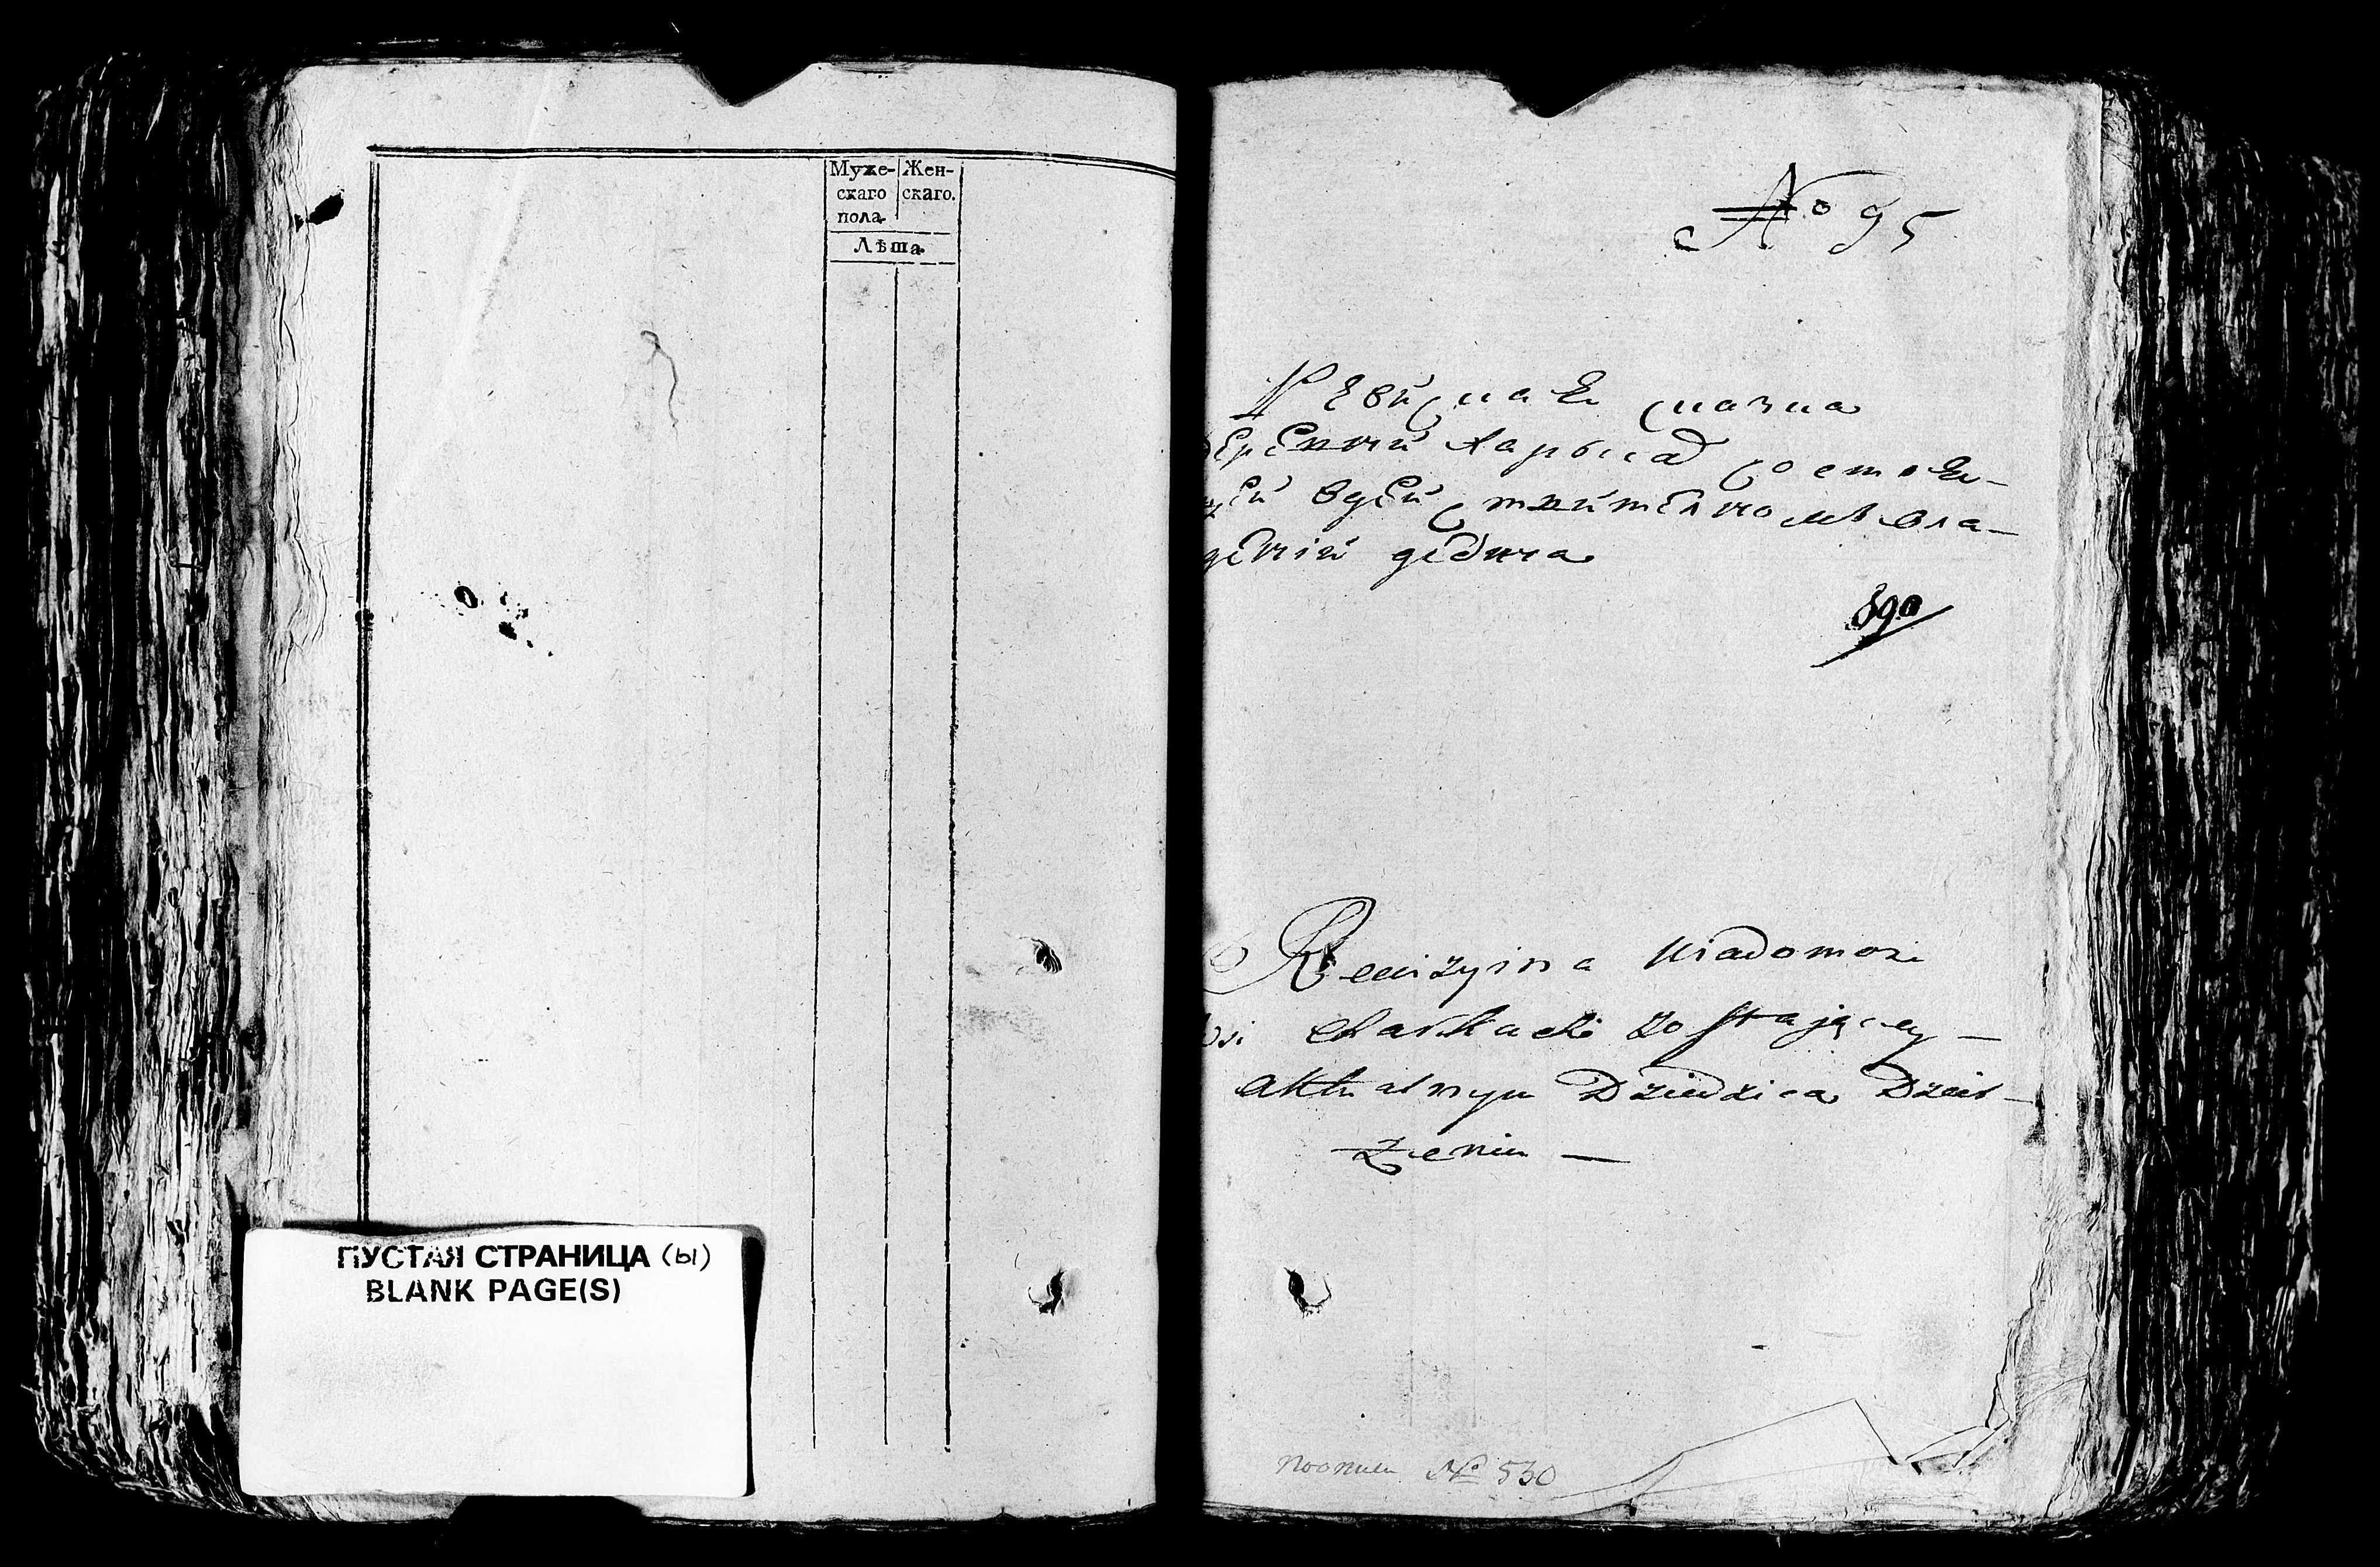 Муже-
скаго
пола.
Жен-
скаго.
Лѣта
ПУСТАЯ СТРАНИЦА (ы)
BLANK PAGE(S)
№ 95
Ревизская сказка
состоя-
щей вдействительномъ вла-
дѣнии дедича
890
Rewizyina wiadomość
wsi zostającey —
aktualnym Dziedzica Dzier-
żeniu —
№ 530